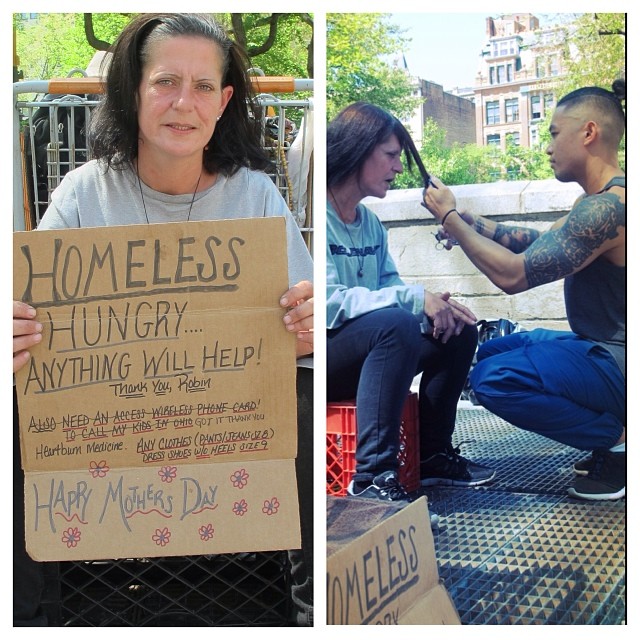 HOMELESS
HUNGRY....
ANYTHING WILL HELP!
Thank You, Robin
ALSO NEED AN ACCESS WIRELESS PHONE CARD!
TO CALL MY KIDS IN OHIO GOT IT THANK YOU
Heartburn Medicine. ANY CLOTHES (PANTS/JEANS SZ 8)
DRESS SHOES W/O HEELS SIZE 9
HAPPY MOTHERS DAY
OMELESS